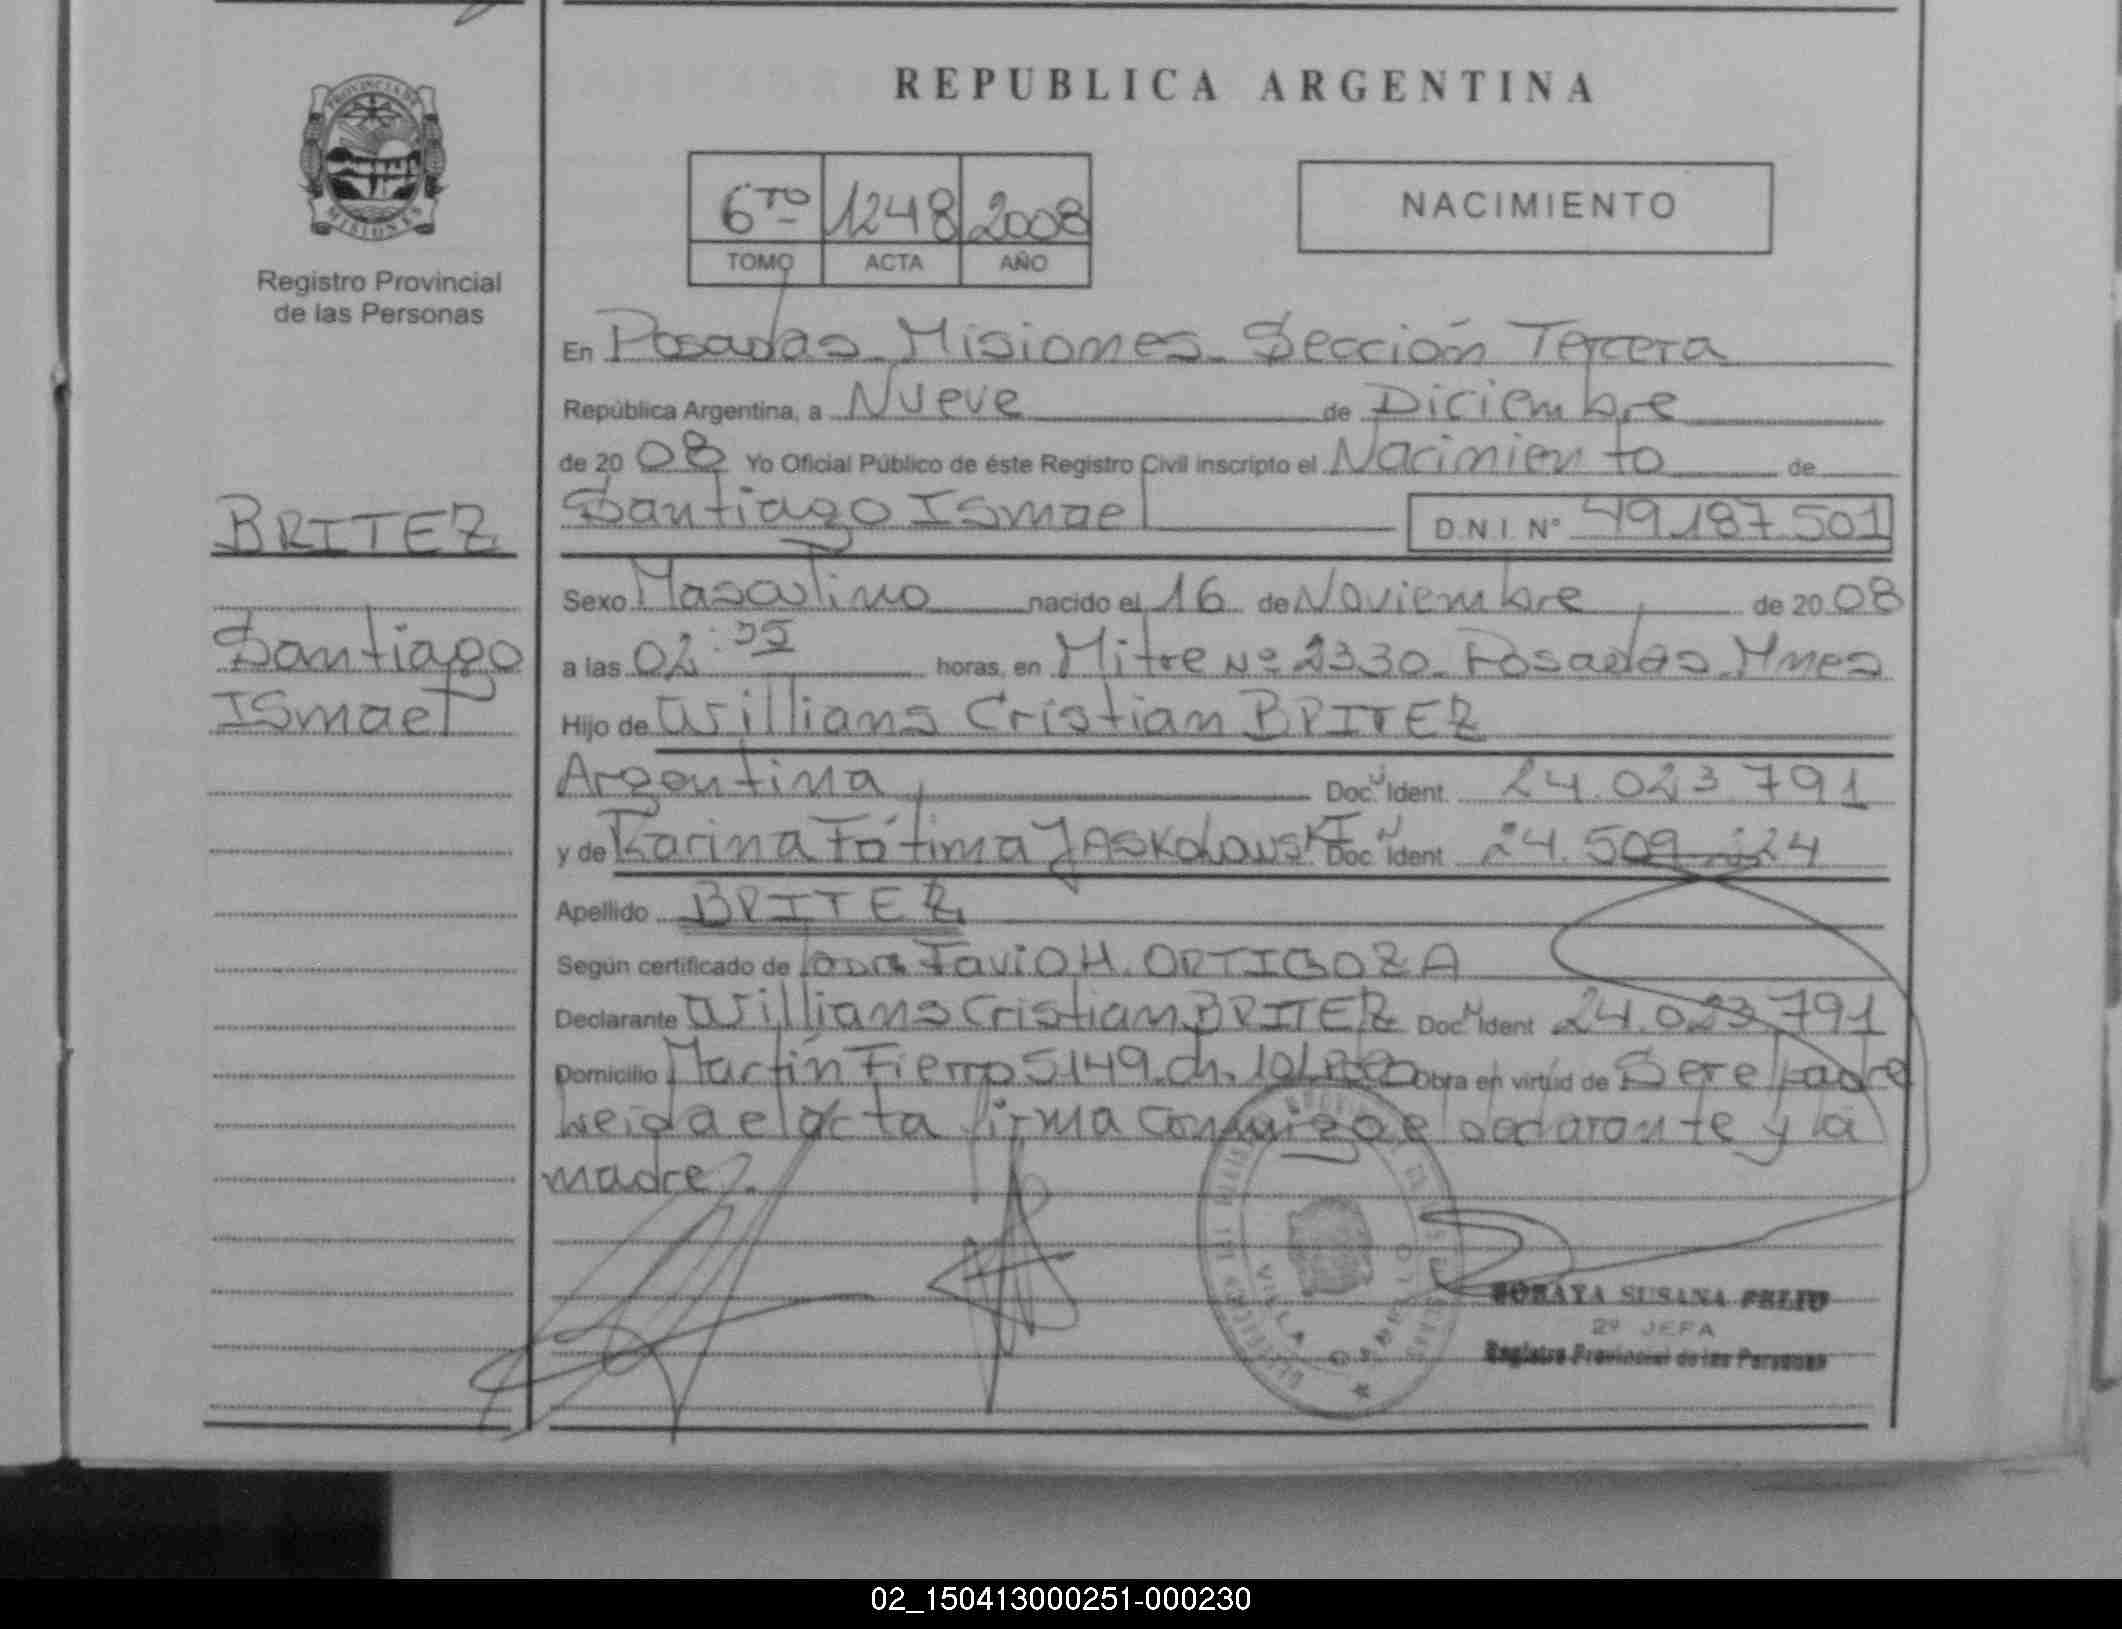 PROVINCIA DE
MISIONES
Registro Provincial
de las Personas
BRITEZ
Santiago
Ismael
REPUBLICA ARGENTINA
6TO 1248 2008
TOMO ACTA AÑO
NACIMIENTO
En Posadas Misiones Sección Tercera
República Argentina, a Nueve de Diciembre
de 20 08 Yo Oficial Público de éste Registro Civil inscripto el Nacimiento de
Santiago Ismael D.N.I. Nº 49.187.501
Sexo Masculino nacido el 16 de Noviembre de 20 08
a las 02: horas, en Mitre Nº 2330. Posadas. Mnes
Hijo de Willians Cristian BRITEZ
Argentina Doc. Ident. 24.023.791
y de Karina Fátima JASKOLOWSKI Doc. Ident. 24.509
Apellido BRITEZ
Según certificado de Favio H. ORTIGOZA
Declarante Willians Cristian BRITEZ Doc. Ident 24.023.791
Domicilio Martín Fierro 5149. ch. Obra en virtud de Ser el padre
Leida el acta firma conmigo el declarante y la
madre.
VILLA
SORAYA SUSANA
2º JEFA
Registro Provincial de las Personas
02_150413000251-000230